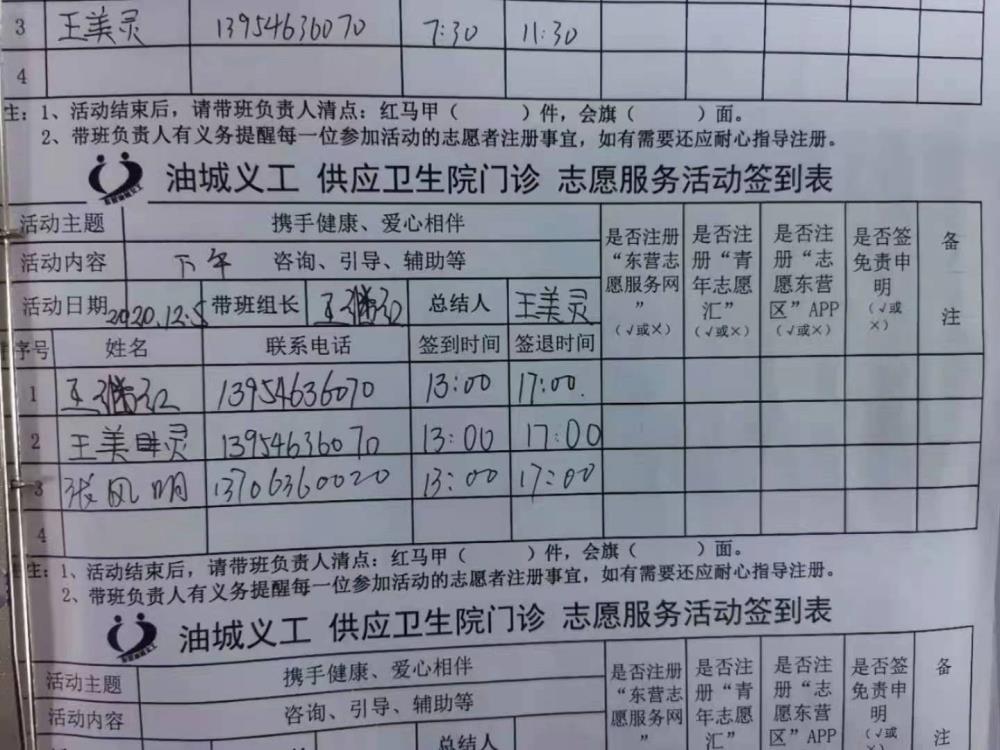 3 王美灵 13954636070 7:30 11:30
4
注：1、活动结束后，请带班负责人清点：红马甲（ ）件，会旗（ ）面。
2、带班负责人有义务提醒每一位参加活动的志愿者注册事宜，如有需要还应耐心指导注册。
油城义工 供应卫生院门诊 志愿服务活动签到表
活动主题 携手健康、爱心相伴 是否注册“东营志愿服务网”（√或×） 是否注册“青年志愿汇”（√或×） 是否注册“志愿东营区”APP（√或×） 是否签免责申明（√或×） 备注
活动内容 下午 咨询、引导、辅助等
活动日期 2020.12.5 带班组长 王 红 总结人 王美灵
序号 姓名 联系电话 签到时间 签退时间
1 王 红 13954636070 13:00 17:00
2 王美灵 13954636070 13:00 17:00
3 张风明 13706360020 13:00 17:00
4
注：1、活动结束后，请带班负责人清点：红马甲（ ）件，会旗（ ）面。
2、带班负责人有义务提醒每一位参加活动的志愿者注册事宜，如有需要还应耐心指导注册。
油城义工 供应卫生院门诊 志愿服务活动签到表
活动主题 携手健康、爱心相伴 是否注册“东营志愿服务网” 是否注册“青年志愿汇” 是否注册“志愿东营区”APP 是否签免责申明（√或×） 备注
活动内容 咨询、引导、辅助等
总结人